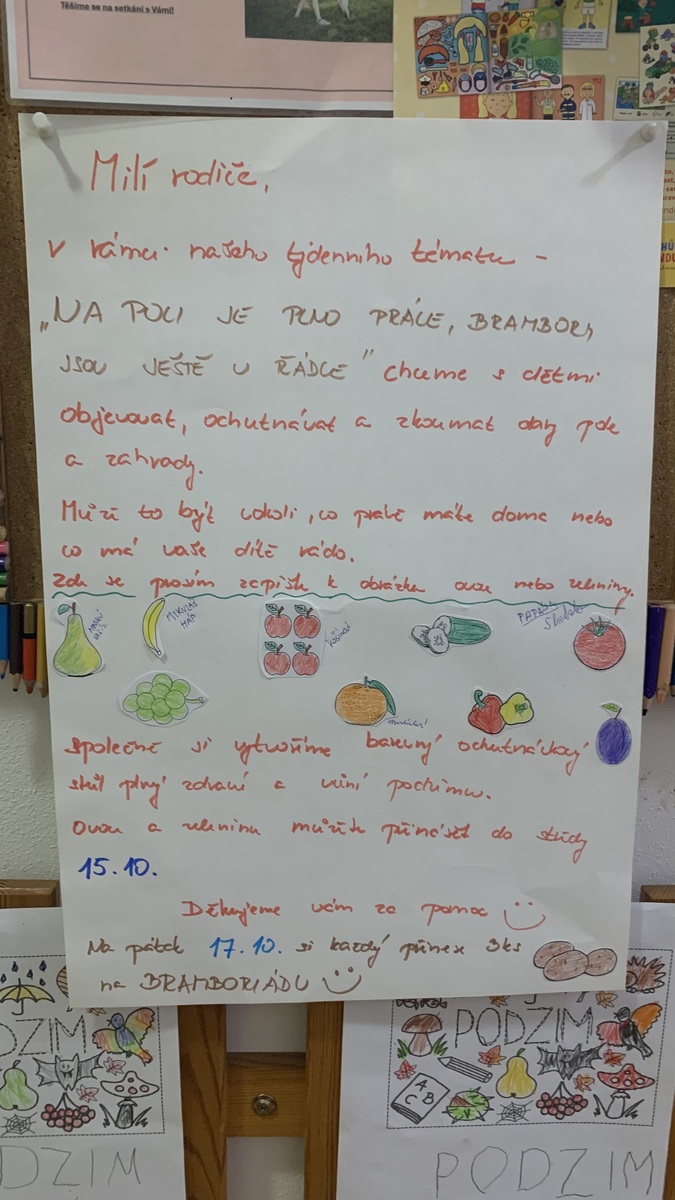 Těšíme se na setkání s Vámi!
Milí rodiče,
v rámci našeho týdenního tématu -
„NA POLI JE PLNO PRÁCE, BRAMBORY
JSOU JEŠTĚ V ŘÁDCE" chceme s dětmi
objevovat, ochutnávat a zkoumat dary pole
a zahrady.
Může to být cokoli, co právě máte doma nebo
co má vaše dítě rádo.
Zde se prosím zapište k obrázku ovoce nebo zeleniny.
MIKULÁŠ
Společně si vytvoříme barevný ochutnávkový
stůl plný zdraví a vůní podzimu.
Ovoce a zeleninu můžete přinášet do středy
15.10.
Děkujeme vám za pomoc
Na pátek 17.10. si každý přinese 3ks
na BRAMBORIÁDU
PODZIM
A
B
C
DZIM
PODZIM